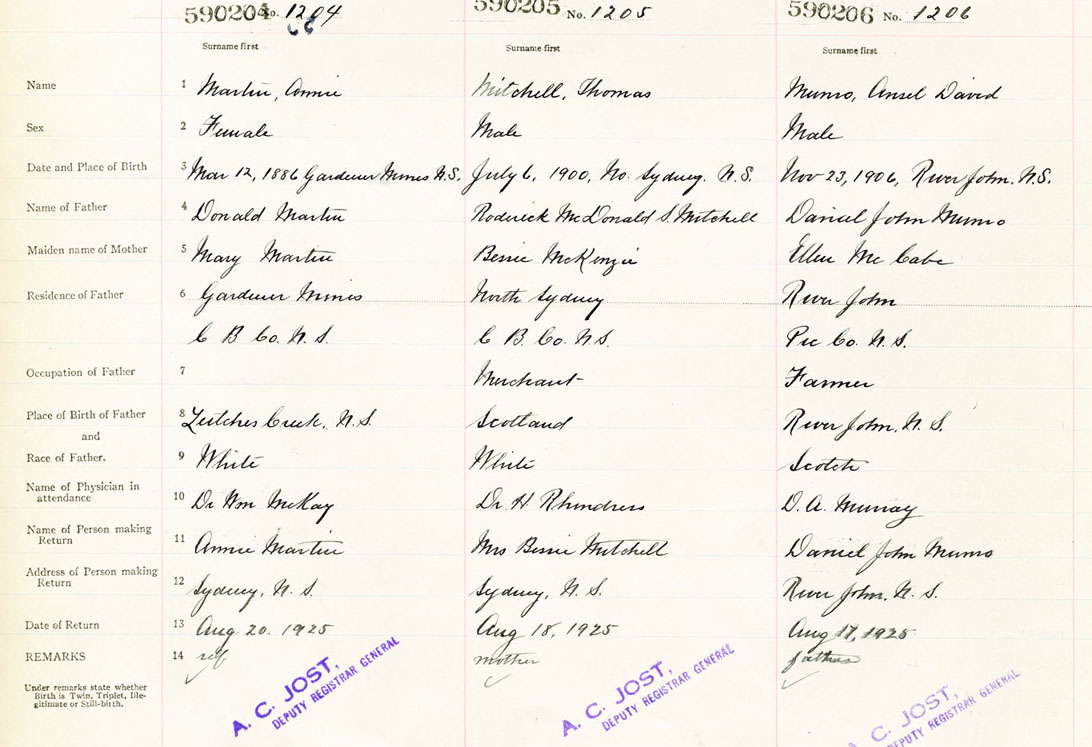 590204 No. 1204 590205 No. 1205 590206 No. 1206
Surname first Surname first Surname first
Name 1 Martin, Annie Mitchell, Thomas Munro, Ansel David
Sex 2 Female Male Male
Date and Place of Birth 3 Mar 12, 1886 Gardener Mines N.S. July 6, 1900, No. Sydney. N.S. Nov 23, 1906, River John, N.S.
Name of Father 4 Donald Martin Roderick McDonald S. Mitchell Daniel John Munro
Maiden name of Mother 5 Mary Martin Bessie McKenzie Ellen Mc Cabe
Residence of Father 6 Gardener Mines North Sydney River John
C B Co. N. S. C B. Co. N.S. Pic Co. N. S.
Occupation of Father 7 Merchant Farmer
Place of Birth of Father 8 Leitches Creek, N.S. Scotland River John, N. S.
and
Race of Father. 9 White White Scotch
Name of Physician in
attendance 10 Dr Wm McKay Dr H D. A. Murray
Name of Person making
Return 11 Annie Martin Mrs Bessie Mitchell Daniel John Munro
Address of Person making
Return 12 Sydney, N. S. Sydney, N. S. River John, N. S.
Date of Return 13 Aug 20. 1925 Aug 18, 1925 Aug 17, 1925
REMARKS 14 self mother father
Under remarks state whether
Birth is Twin, Triplet, Ille-
gitimate or Still-birth.
A. C. JOST, A. C. JOST, A. C. JOST,
DEPUTY REGISTRAR GENERAL DEPUTY REGISTRAR GENERAL DEPUTY REGISTRAR GENERAL